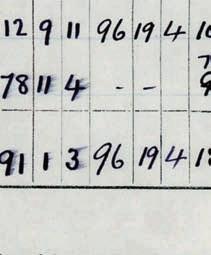 12 9 11 96 19 4
78 11 4 - -
91 1 3 96 19 4